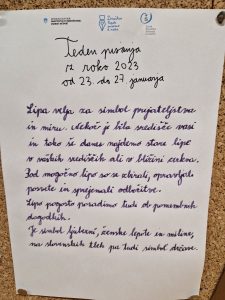 Teden pisanja
z roko 2023
od 23. do 27. januarja
Lipa velja za simbol prijateljstva
in miru. Nekoč je bila središče vasi
in tako še danes najdemo stare lipe
v vaških središčih ali v bližini cerkva.
Pod mogočno lipo so se zbirali, opravljali
posvete in sprejemali odločitve.
Lipo pogosto posadimo tudi ob pomembnih
dogodkih.
Je simbol ljubezni, ženske lepote in miline,
na slovenskih tleh pa tudi simbol države.